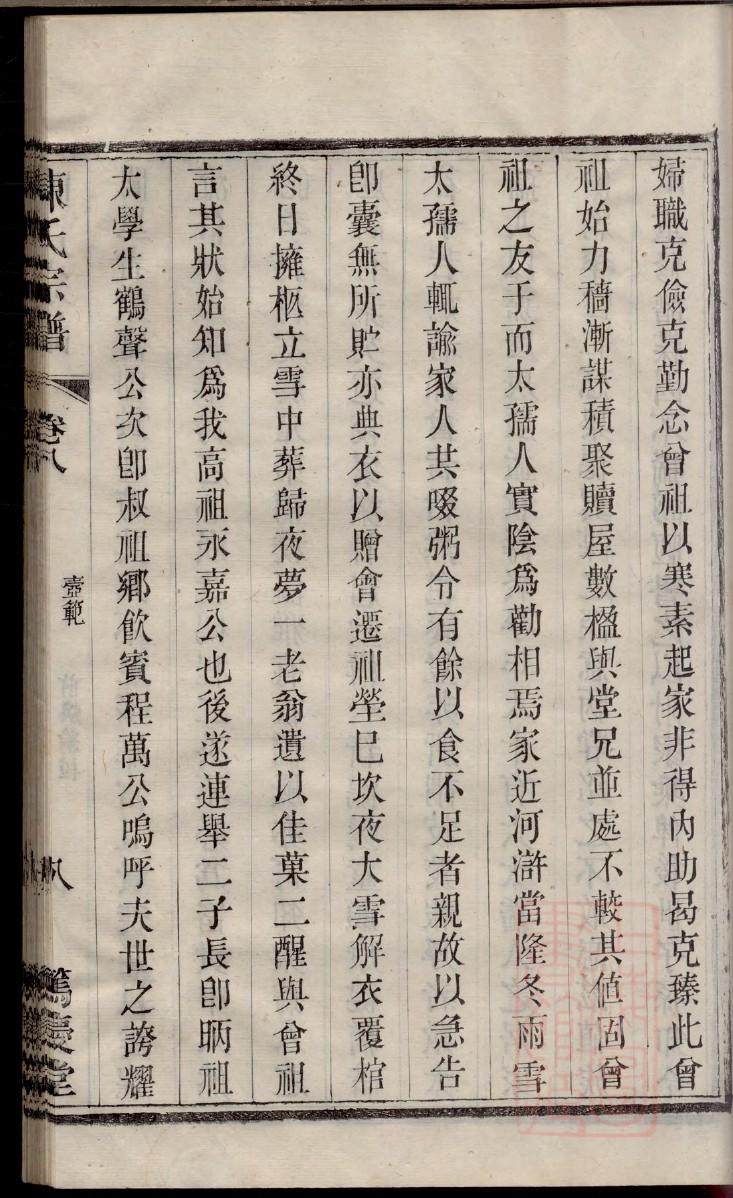 婦職克儉克勤念曾祖以寒素起家非得內助曷克臻此曾
祖始力穡漸謀積聚贖屋數楹與堂兄並處不較其值固曾
祖之友于而太孺人實陰爲勸相焉家近河滸當隆冬雨雪
太孺人輒諭家人共啜粥令有餘以食不足者親故以急告
卽囊無所貯亦典衣以贈會遷祖塋巳坎夜大雪解衣覆棺
終日擁柩立雪中葬歸夜夢一老翁遺以佳菓二醒與曾祖
言其狀始知爲我高祖永嘉公也後遂連舉二子長卽昞祖
太學生鶴聲公次卽叔祖鄉飮賓程萬公嗚呼夫世之誇耀
陳氏宗譜
卷八
壼範
八
篤慶堂